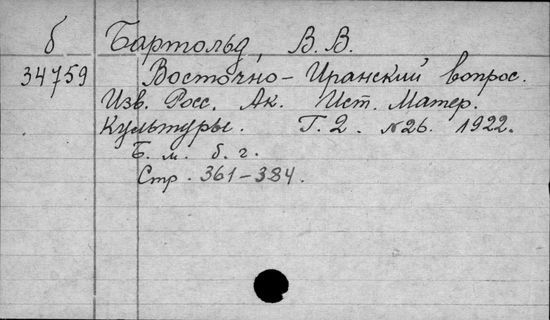 б Бартольд, В. В.
34759 Восточно-Иранский вопрос.
Изв. Росс. Ак. Ист. Матер.
Культуры. Т. 2. №26. 1922.
Б. м. б. г.
Стр. 361-384.